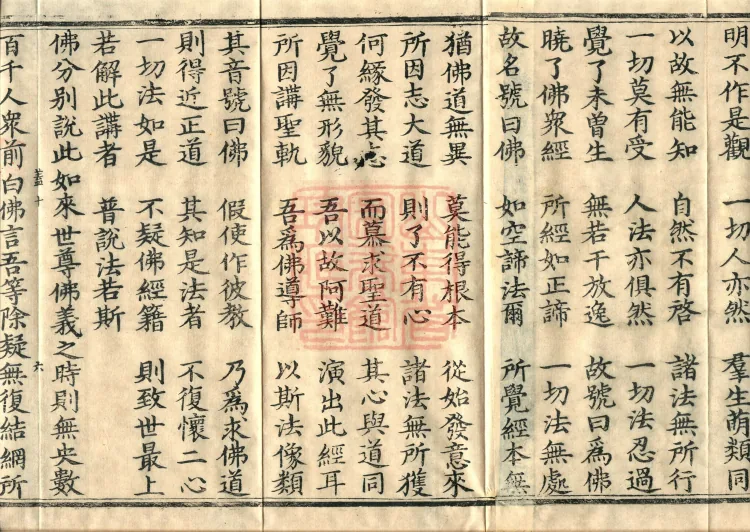 明不作是觀　一切人亦然　羣生萌類同
以故無能知　自然不有啓　諸法無所行
一切莫有受　人法亦俱然　一切法忍過
覺了未曾生　無若干放逸　故號曰爲佛
曉了佛衆經　所經如正諦　一切法無處
故名號曰佛　如空諦法爾　所覺經本無
猶佛道無異　莫能得根本　從始發意來
所因志大道　則了不有心　諸法無所獲
何緣發其志　而慕求聖道　其心與道同
覺了無形貌　吾以故阿難　演出此經耳
所因講聖軌　吾爲佛導師　以斯法像類
其音號曰佛　假使作彼教　乃爲求佛道
則得近正道　其知是法者　不復懷二心
一切法如是　不疑佛經籍　則致世最上
若解此講者　普說法若斯
佛分別說此如來世尊佛義之時則無央數
蓋十　六
百千人衆前白佛言吾等除疑無復結網所